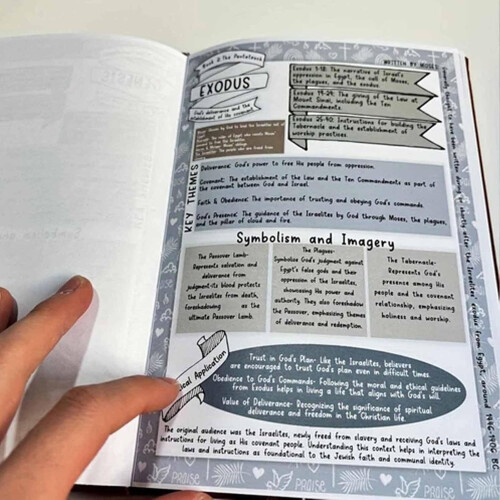 Book 2: The Pentateuch
WRITTEN BY MOSES
EXODUS
God's deliverance and the
establishment of His covenant
Exodus 1-18: The narrative of Israel's
oppression in Egypt, the call of Moses,
the plagues, and the exodus
Exodus 19-24: The giving of the Law at
Mount Sinai, including the Ten
Commandments.
Exodus 25-40: Instructions for building the
Tabernacle and the establishment of
worship practices.
KEY THEMES
Deliverance: God's power to free His people from oppression.
Covenant: The establishment of the Law and the Ten Commandments as part of
the covenant between God and Israel.
Faith & Obedience: The importance of trusting and obeying God's commands.
God's Presence: The guidance of the Israelites by God through Moses, the plagues,
and the pillar of cloud and fire.
Symbolism and Imagery
The Passover Lamb-
Represents salvation and
deliverance from
judgment-its blood protects
the Israelites from death,
foreshadowing as the
ultimate Passover Lamb.
The Plagues-
Symbolize God's judgment against
Egypt's false gods and their
oppression of the Israelites,
showcasing His power and
authority. They also foreshadow
the Passover, emphasizing themes
of deliverance and redemption.
The Tabernacle-
Represents God's
presence among His
people and the covenant
relationship, emphasizing
holiness and worship.
Application
Trust in God's Plan- Like the Israelites, believers
are encouraged to trust God's plan even in difficult times.
Obedience to God's Commands- Following the moral and ethical guidelines
from Exodus helps in living a life that aligns with God's will.
Value of Deliverance- Recognizing the significance of spiritual
deliverance and freedom in the Christian life.
The original audience was the Israelites, newly freed from slavery and receiving God's laws and
instructions for living as His covenant people. Understanding this context helps in interpreting the
laws and instructions as foundational to the Jewish faith and communal identity.
PRAISE
PRAISE